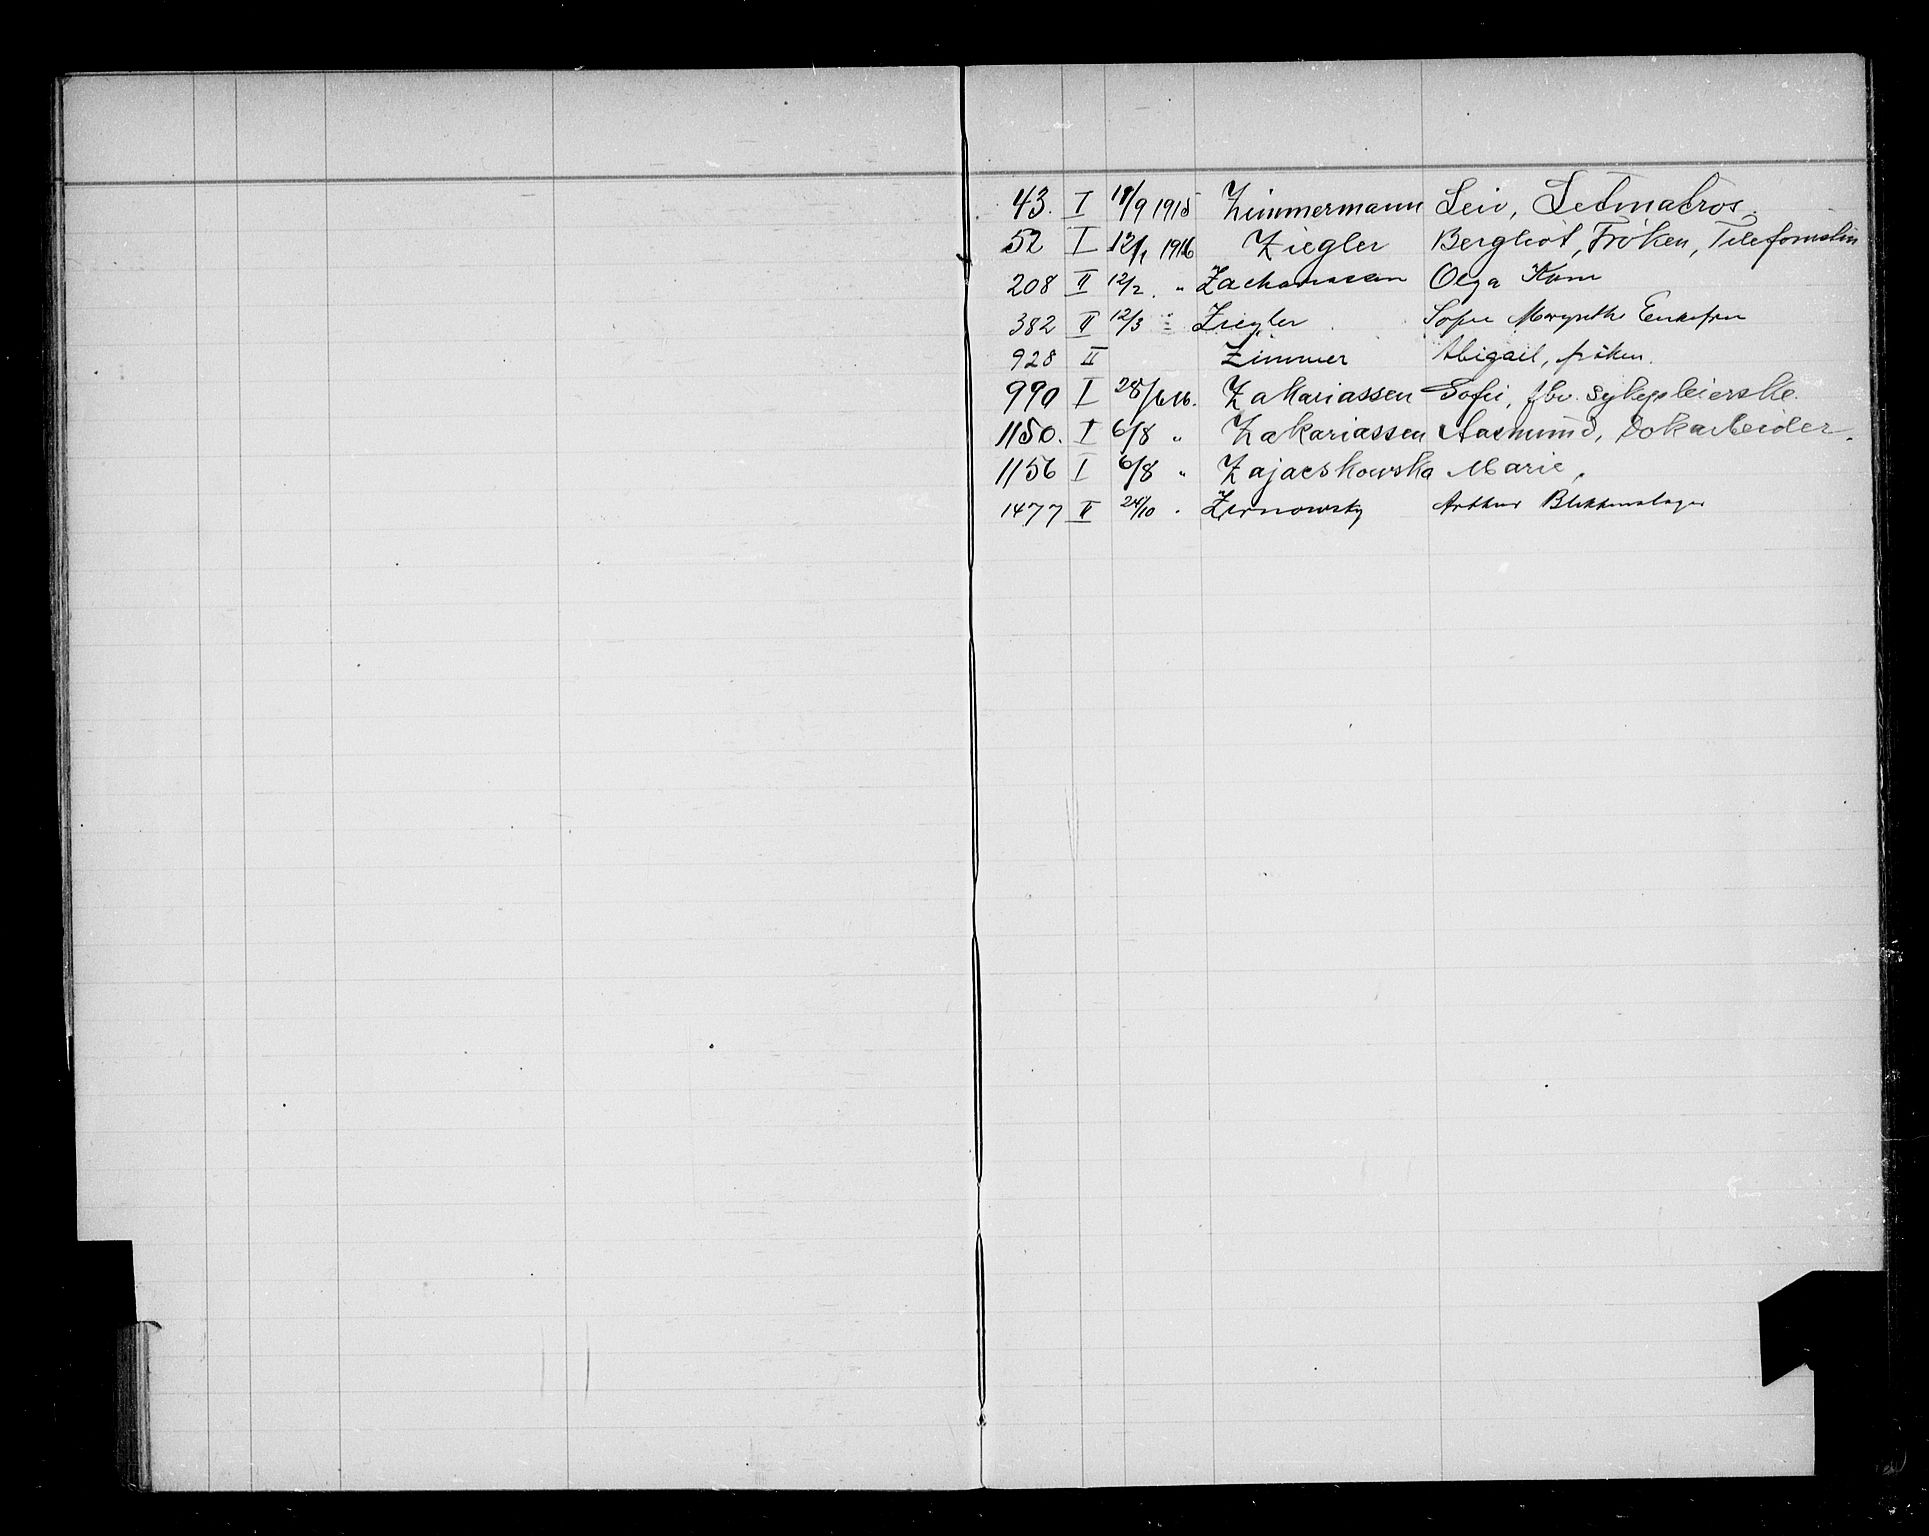 43. I 18/9 1915 Zimmermann Leiv, Letmatros.
52 I 12/1 1916 Ziegler Bergliot, Frøken, Telefonistin
208 II 12/2 " Zachariassen Olga Kone
382 II 12/3 " Ziegler Sofie Margrethe Enkefru
928 II Zimmer Abigail, frøken.
990 I 28/6 16. Zakariassen Sofie, fhv. Sykepleierske.
1150. I 6/8 " Zakariassen Aasmund, Dokarbeider.
1156 I 6/8 " Zajaeskowska Marie.
1477 II 24/10 " Zirnowsky Arthur Blikkenslager